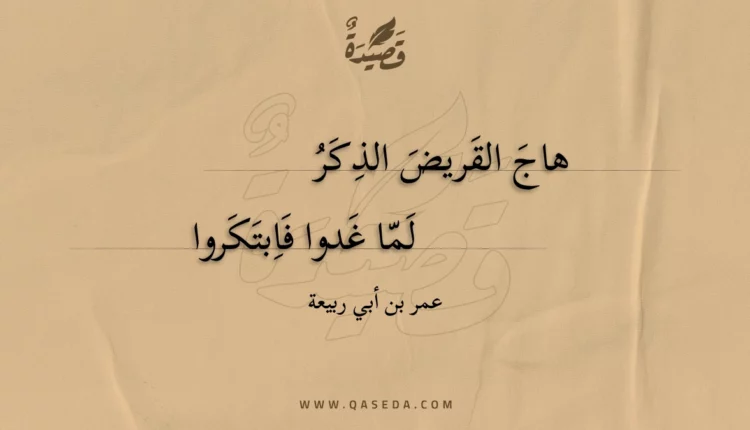 قَصِيدَةٌ
هاجَ القَريضَ الذِكَرُ
لَمّا غَدوا فَاِبتَكَروا
عمر بن أبي ربيعة
WWW.QASEDA.COM